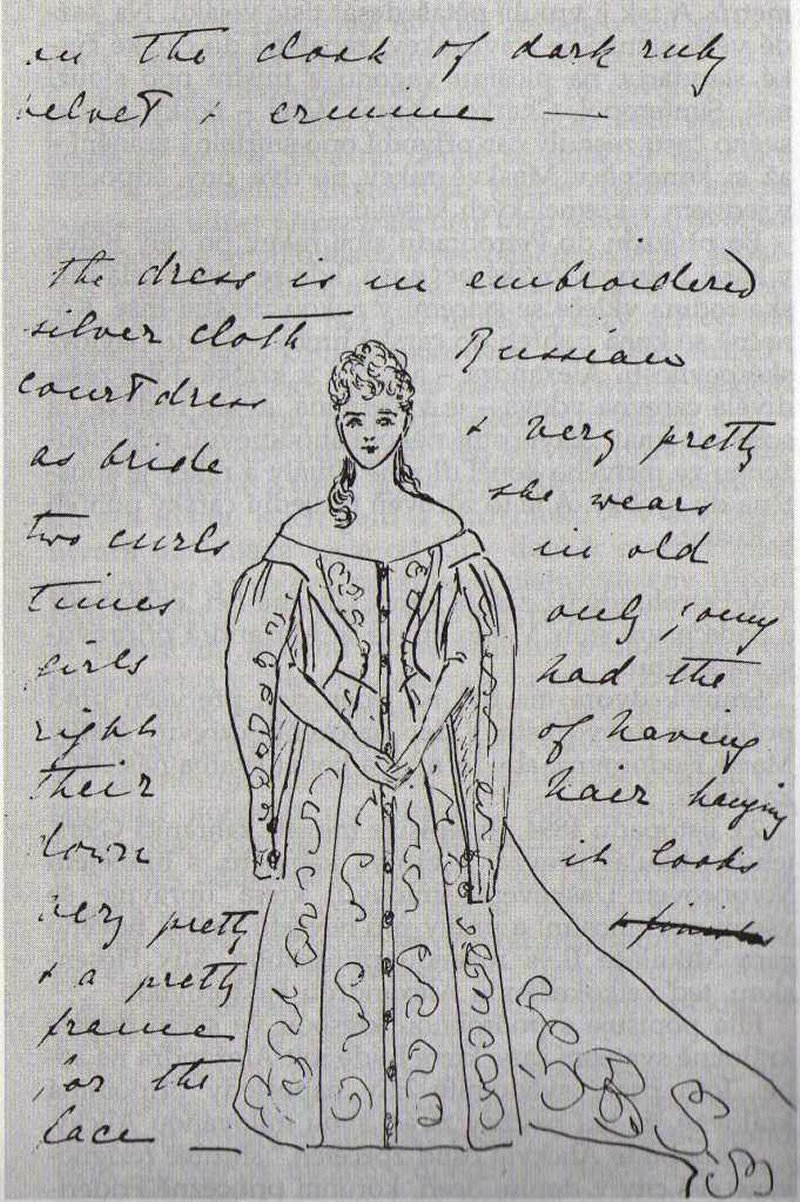 in the cloak of dark ruby
velvet & ermine —
the dress is in embroidered
silver cloth Russian
court dress & very pretty
as bride she wears
two curls in old
times only young
girls had the
right of having
their hair hanging
down it looks
very pretty
& a pretty
frame
for the
face —